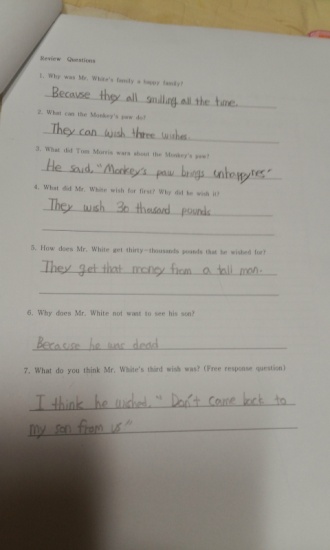 Review Questions
1. Why was Mr. White's family a happy family?
Because they all smiling all the time.
2. What can the Monkey's paw do?
They can wish three wishes.
3. What did Tom Morris warn about the Monkey's paw?
He said, "Monkey's paw brings unhappyness."
4. What did Mr. White wish for first? Why did he wish it?
They wish 30 thousand pounds
5. How does Mr. White get thirty-thousands pounds that he wished for?
They get that money from a tall man.
6. Why does Mr. White not want to see his son?
Because he was dead
7. What do you think Mr. White's third wish was? (Free response question)
I think he wished, "Don't come back to
my son from us"